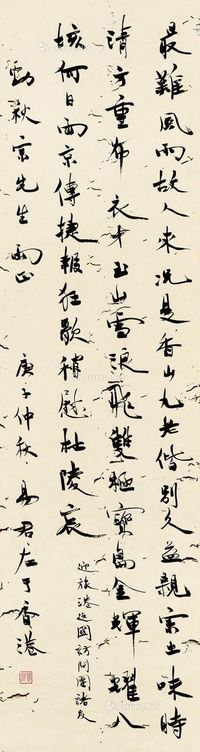 最難風雨故人來况是香山九老偕別久益親宗土味時
清方重布衣才玉山雪浪飛雙軀寶島金輝耀八
垓何日兩京傳捷報狂歌稍慰杜陵哀
迎旅港返國訪問團諸友
勁秋宗先生兩正
庚子仲秋 易君左于香港